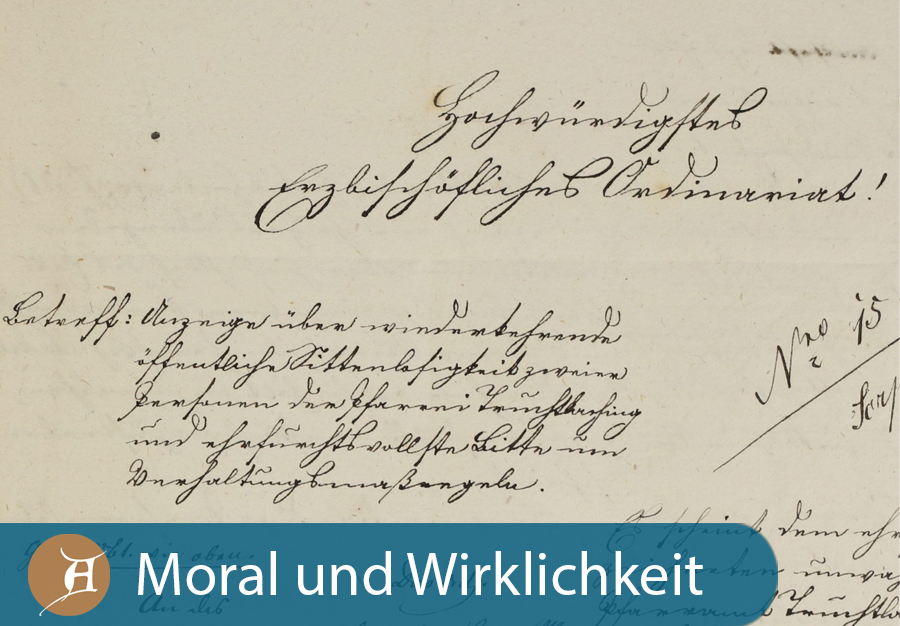 Hochwürdigstes
Erzbischöfliches Ordinariat!
Betreff: Anzeige über wiederkehrende
öffentliche Sittenlosigkeit zweier
Personen der Pfarrei Truchtlaching
und ehrfurchtsvollste Bitte um
Verhaltungsmaßregeln.
Nro 15
Es scheint dem
oben.
An das
Pfarramt
Moral und Wirklichkeit